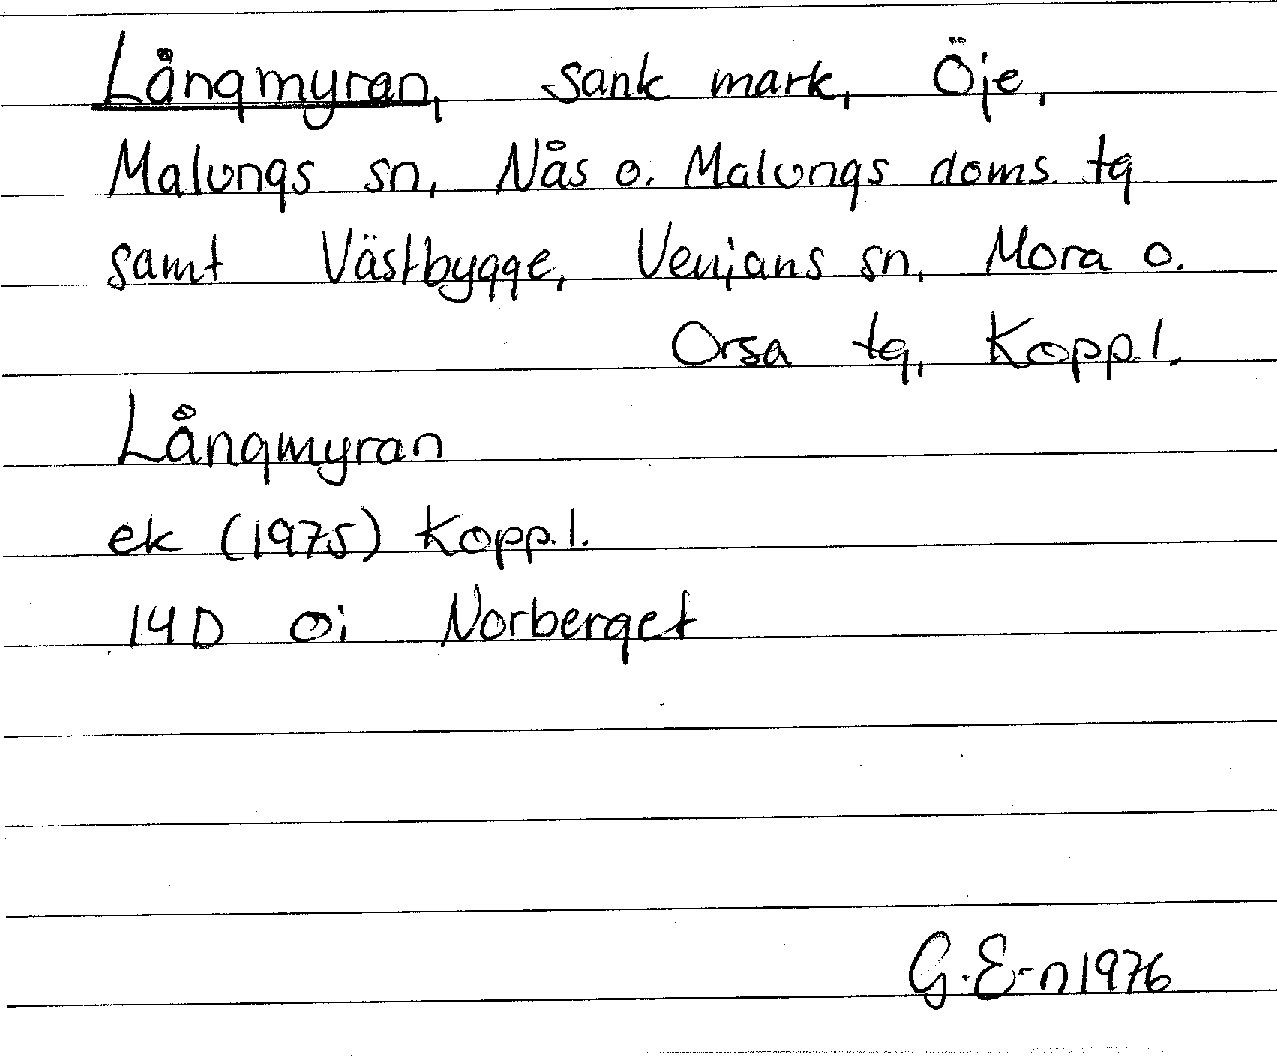 Långmyran, sank mark, Öje,
Malungs sn, Nås o. Malungs doms. tg
samt Västbygge, Venjans sn, Mora o.
Orsa tg, Kopp.l.
Långmyran
ek (1975) Kopp.l.
14D 0i Norberget
G.E-n 1976